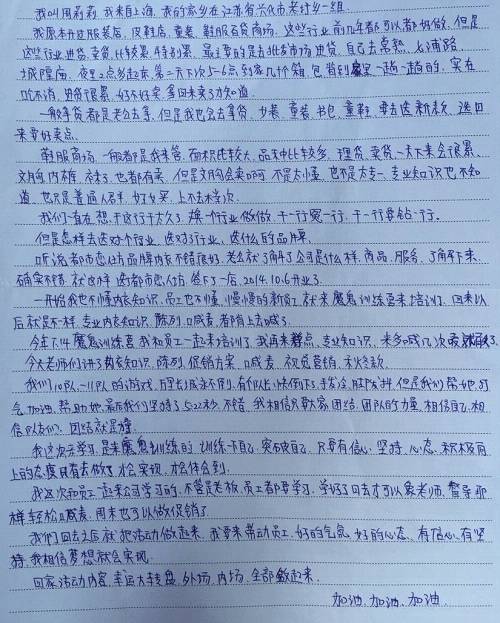 我叫周莉莉 我来自上海, 我的家乡在江苏省兴化市老圩乡一组.
我原本开过服装店, 皮鞋店, 童装, 鞋服百货商场, 这些行业前几年都可以都好做, 但是
这些行业进货, 卖货, 比较累, 特别累, 最主要的是去批发市场进货, 自己去常熟, 七浦路
城隍庙, 夜里2点多起来, 第二天下次5-6点到家几个箱, 包背到家里一趟一趟的, 实在
吃不消, 进货很累, 好不好卖, 拿回来了才知道.
一般拿货都是老公去拿, 但是我也会去拿货, 女装, 童装, 书包, 童鞋, 要去选新款, 选回
来要好卖点.
鞋服商场, 一般都是我来管, 面积比较大, 品类也比较多, 理货, 卖货一天下来会很累,
文胸, 内裤, 袜子, 也都有卖, 但是文胸会卖啊, 不是太懂, 也不是太专, 专业知识也不知
道, 也只是普通人名牌, 好好买, 上不去档次.
我们一直在想, 干这行干太久了, 换一个行业做做, 干一行爱一行, 干一行要钻一行.
但是怎样去选好个行业, 选对了行业, 选什么的品牌,
听说都市恋人坊品牌内衣不错很好, 老公就了解了公司是什么样, 商品, 服务, 了解下来,
确实不错, 就这样, 选都市恋人坊, 签下了一店, 2014.10.6开业了.
一开始我也不懂内衣知识, 员工也不懂, 慢慢的新员工就来魔鬼训练营来培训了, 回来以
后就是不一样, 专业内衣知识, 陈列, 喊麦, 都有上去喊了.
今天7.14魔鬼训练营, 我和员工一起来培训了, 我再来学点, 专业知识, 来多喊几次
今天老师们讲了内衣知识, 陈列, 促销方案, 喊麦, 视觉营销, 和收款.
我们10队-11队的游戏,
气, 加油, 帮助她, 最后我们坚持了5:22秒, 不错, 我相信只要大家团结, 团队的力量, 相信自己, 相
信队友们, 团结就是棒.
我这次来学习, 是来魔鬼训练的, 训练一下自己, 突破自己, 只要有信心, 坚持, 心态, 积极向
上的态度, 只有去做了, 才会实现, 才会体会到.
我这次和员工一起来公司学习的, 不管是老板, 员工都要学习, 学好了回去才可以象老师, 督导那
样轻松喊麦, 周末也可以做促销了.
我们回去之后就把活动做起来, 我要来带动员工, 好的气氛, 好的心态, 有信心, 有坚
持, 我相信梦想就会实现.
回家活动内容, 幸运大转盘, 外场, 内场, 全部做起来.
加油, 加油, 加油.